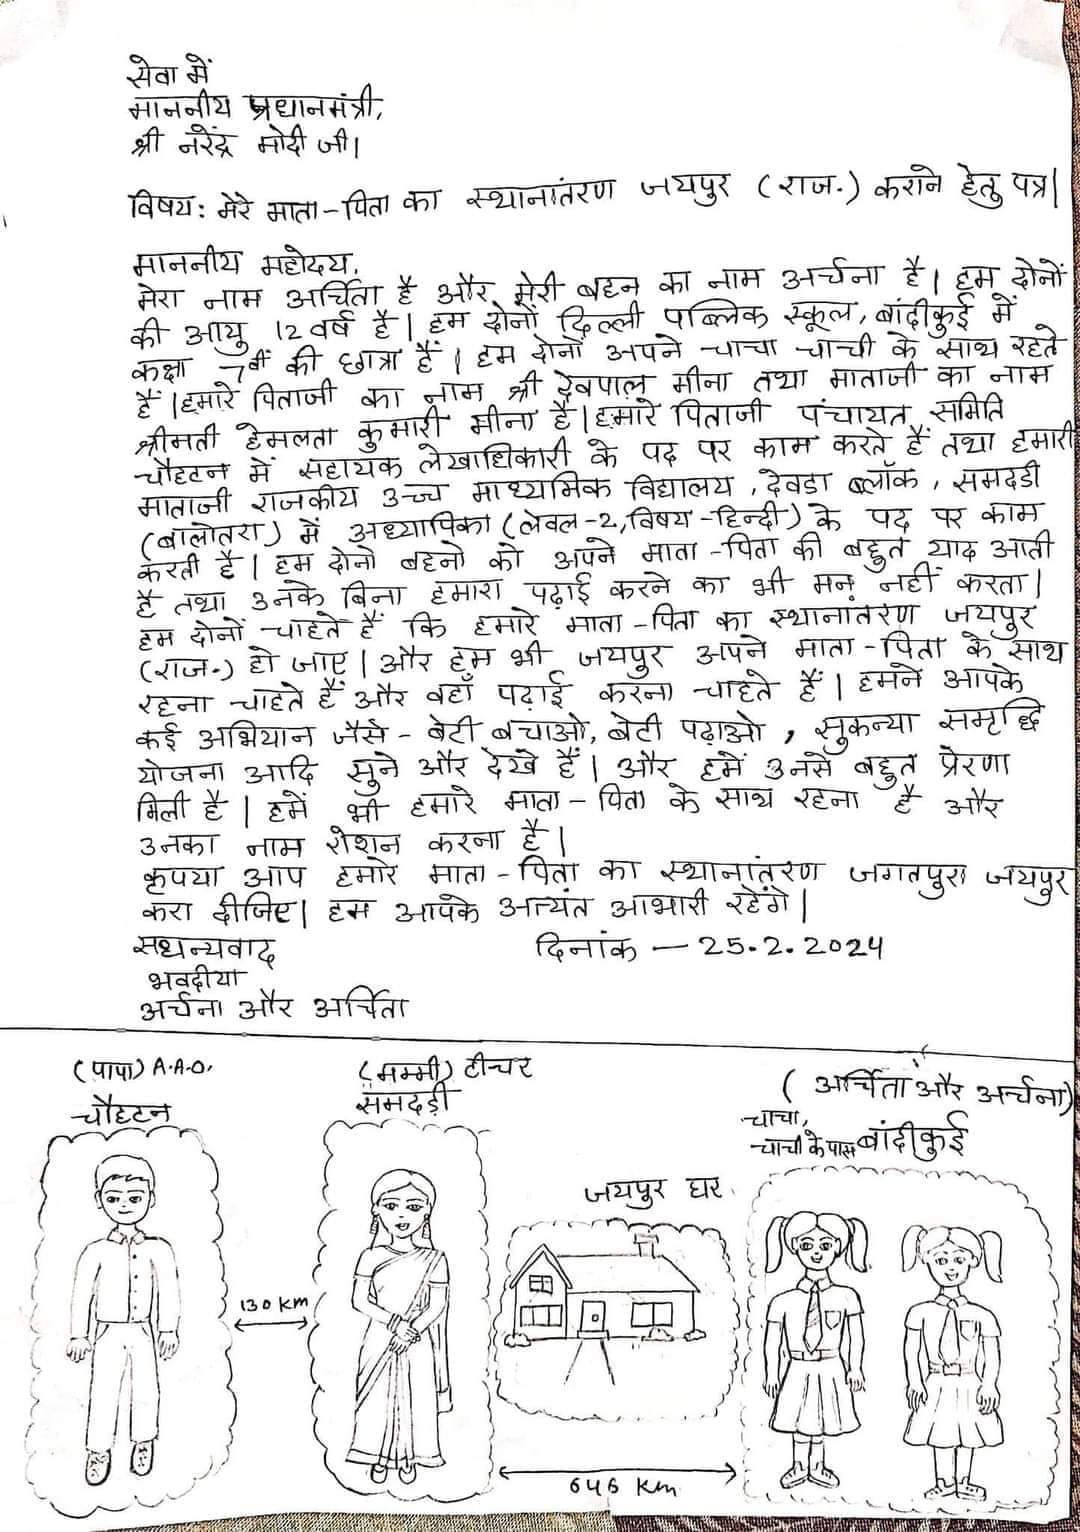 सेवा में
माननीय प्रधानमंत्री,
श्री नरेंद्र मोदी जी।
विषय: मेरे माता-पिता का स्थानांतरण जयपुर (राज.) कराने हेतु पत्र।
माननीय महोदय,
मेरा नाम अर्चिता है और मेरी बहन का नाम अर्चना है। हम दोनों
की आयु 12 वर्ष है। हम दोनों दिल्ली पब्लिक स्कूल, बांदीकुई में
कक्षा 7वीं की छात्रा हैं। हम दोनों अपने चाचा चाची के साथ रहते
हैं। हमारे पिताजी का नाम श्री देवपाल मीना तथा माताजी का नाम
श्रीमती हेमलता कुमारी मीना है। हमारे पिताजी पंचायत समिति
चौहटन में सहायक लेखाधिकारी के पद पर काम करते हैं तथा हमारी
माताजी राजकीय उच्च माध्यमिक विद्यालय, देवडा ब्लॉक, समदडी
(बालोतरा) में अध्यापिका (लेवल-2, विषय-हिन्दी) के पद पर काम
करती है। हम दोनो बहनो को अपने माता-पिता की बहुत याद आती
है तथा उनके बिना हमारा पढ़ाई करने का भी मन नहीं करता।
हम दोनों चाहते हैं कि हमारे माता-पिता का स्थानांतरण जयपुर
(राज.) हो जाए। और हम भी जयपुर अपने माता-पिता के साथ
रहना चाहते हैं और वहाँ पढ़ाई करना चाहते हैं। हमने आपके
कई अभियान जैसे - बेटी बचाओ, बेटी पढ़ाओ, सुकन्या समृद्धि
योजना आदि सुने और देखे हैं। और हमें उनसे बहुत प्रेरणा
मिली है। हमें भी हमारे माता-पिता के साथ रहना है और
उनका नाम रोशन करना है।
कृपया आप हमारे माता-पिता का स्थानांतरण जगतपुरा जयपुर
करा दीजिए। हम आपके अत्यंत आभारी रहेंगे।
सधन्यवाद दिनांक - 25.2.2024
भवदीया
अर्चना और अर्चिता
(पापा) A.A.O.
चौहटन
(मम्मी) टीचर
समदड़ी
(अर्चिता और अर्चना)
चाचा,
चाची के पास बांदीकुई
जयपुर घर.
130 KM
646 Km